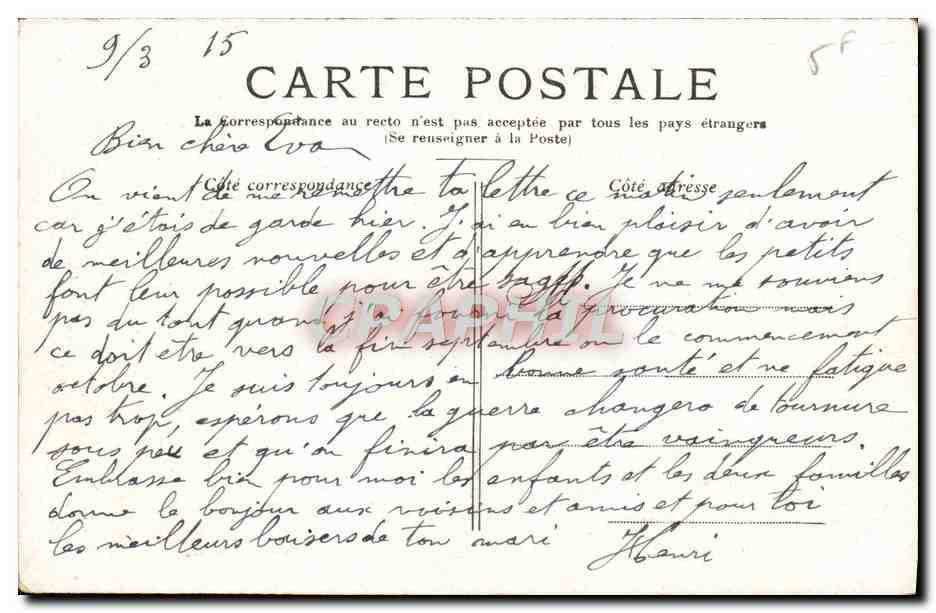 9/3 15
5F
CARTE POSTALE
La Correspondance au recto n'est pas acceptée par tous les pays étrangers
(Se renseigner à la Poste)
Bien chère Eva
Côté correspondance
Côté adresse
On vient de me remettre ta lettre ce matin seulement
car j'étais de garde hier. J'ai eu bien plaisir d'avoir
de meilleures nouvelles et d'apprendre que les petits
font leur possible pour être sages. Je ne me souviens
pas du tout quand j'ai la procuration mais
ce doit être vers la fin septembre ou le commencement
octobre. Je suis toujours en bonne santé et ne fatigue
pas trop, espérons que la guerre changera de tournure
sous peu et qu'on finira par être vainqueurs.
Embrasse bien pour moi les enfants et les deux familles
donne le bonjour aux voisins et amis et pour toi
les meilleurs baisers de ton mari Henri
CPAPHIL